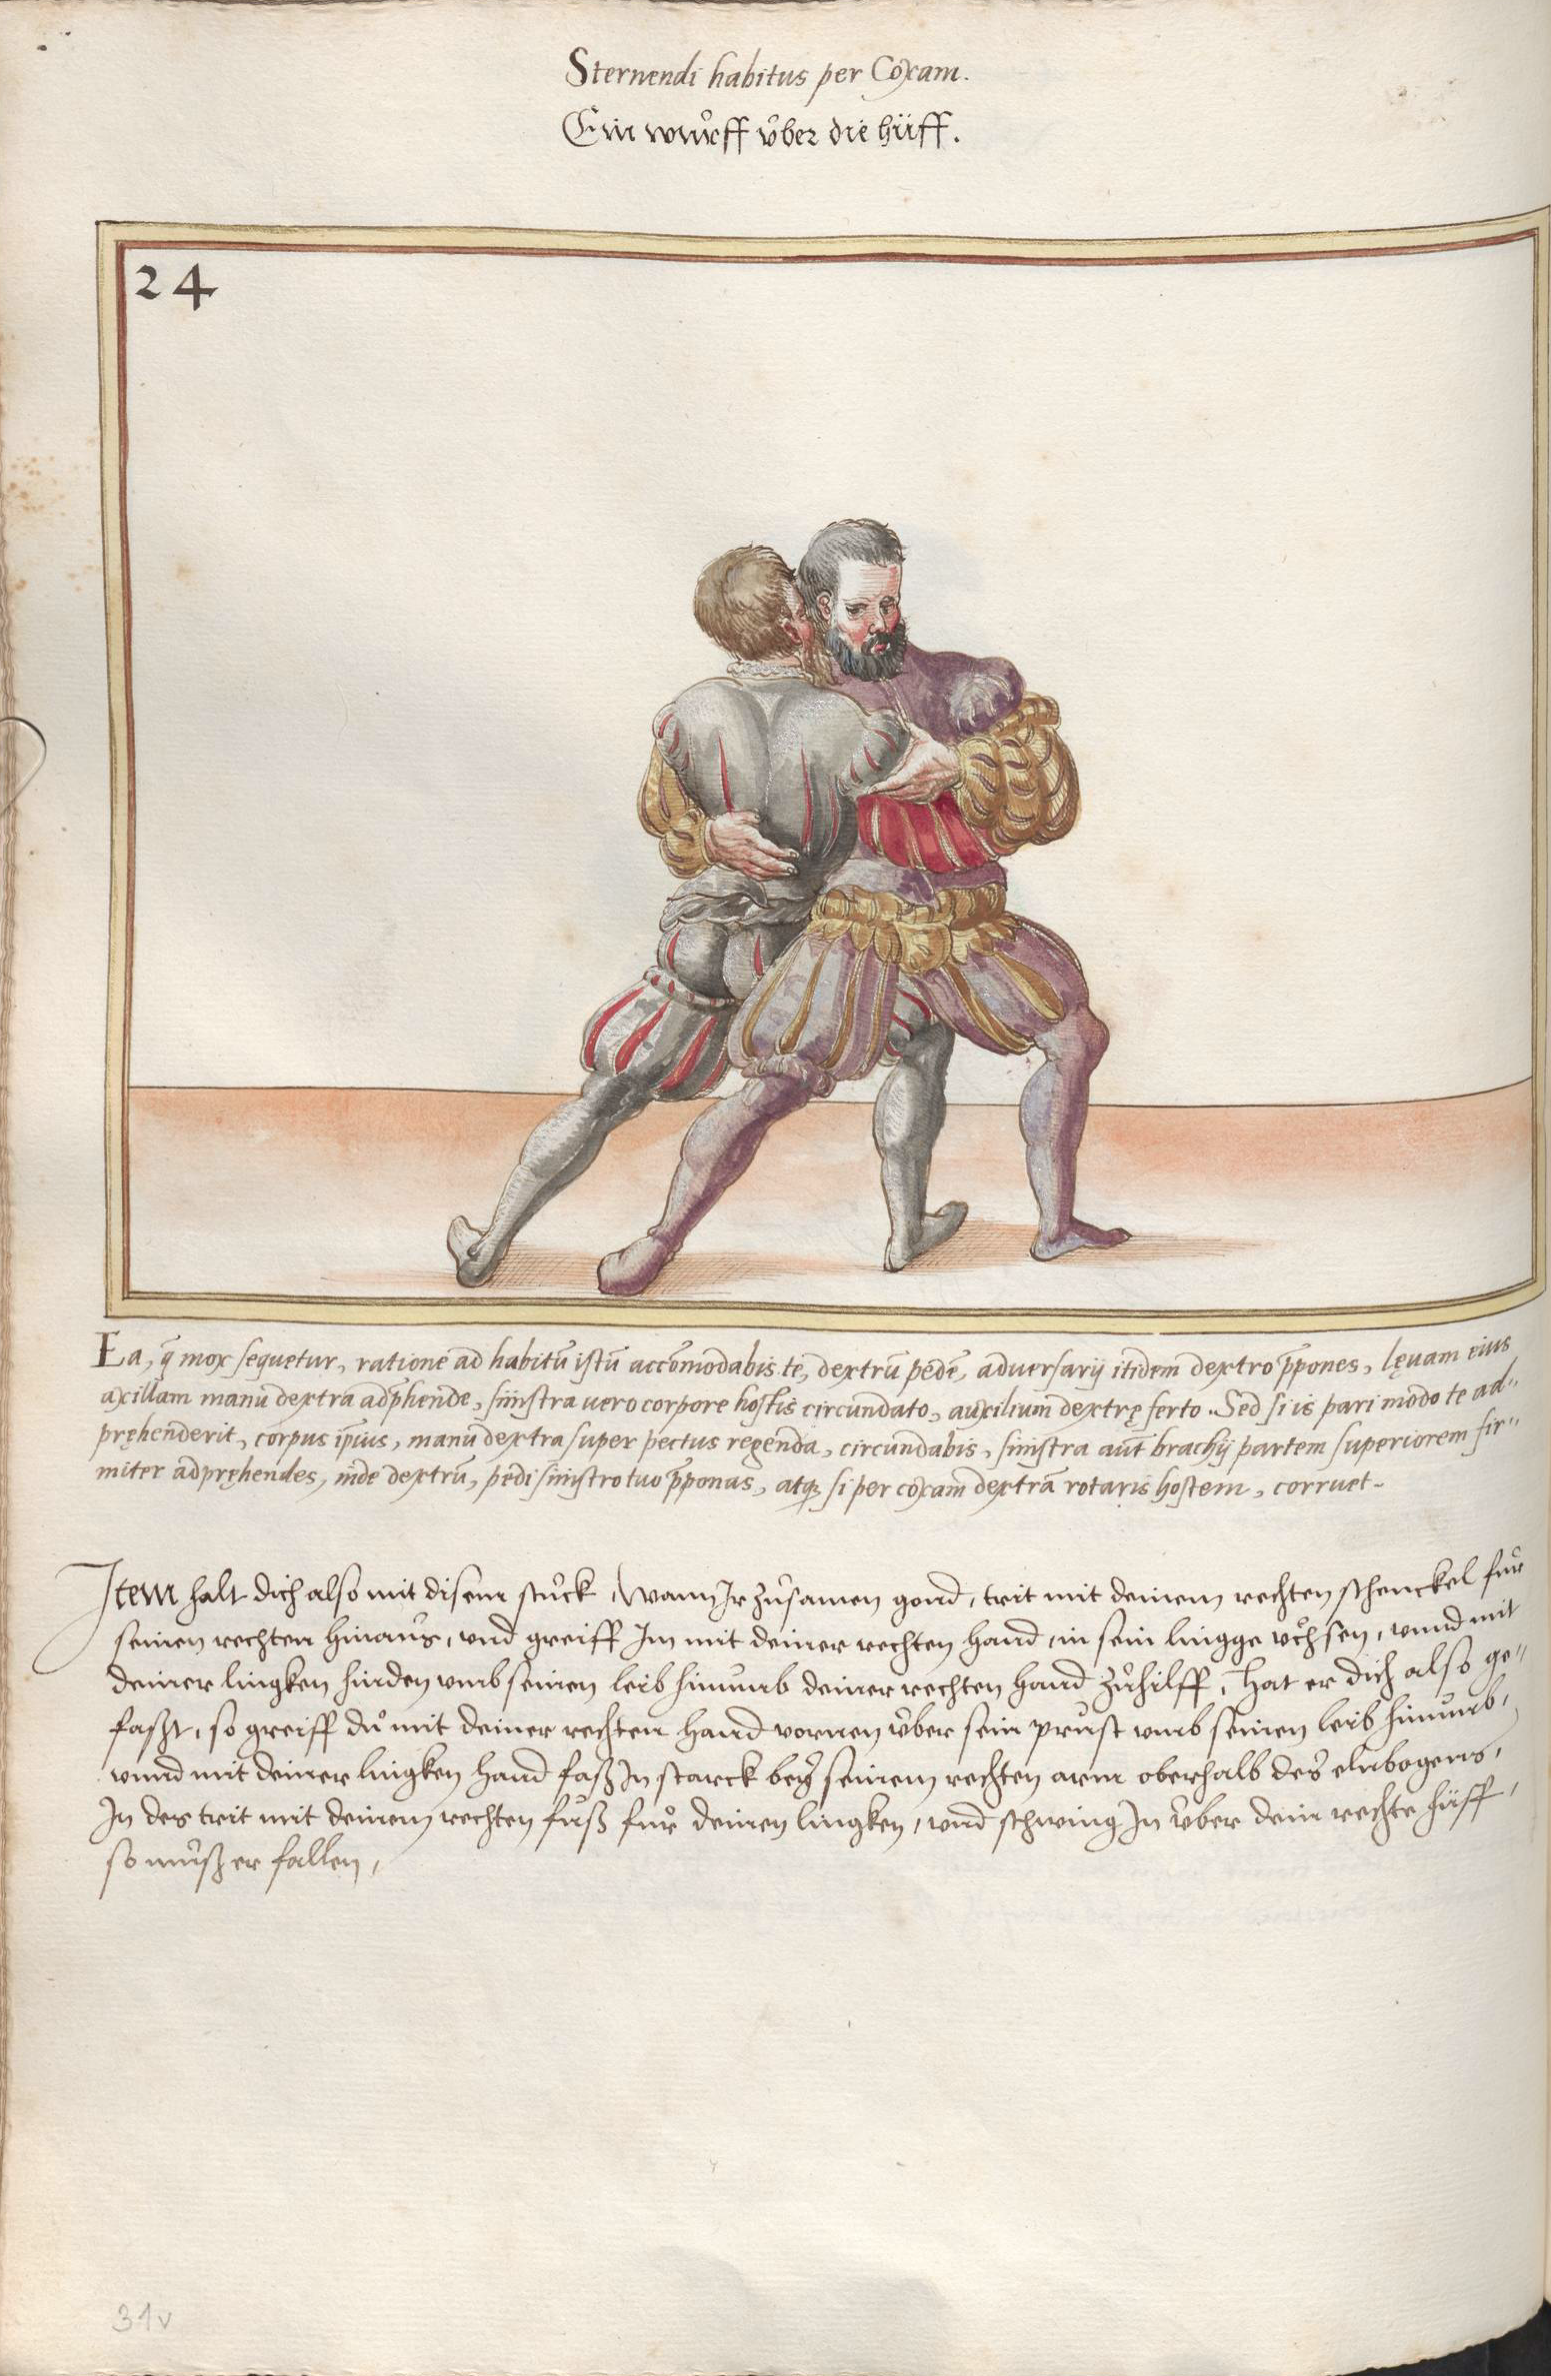 Sternendi habitus per Coxam.
Ein wůrff v̊ber die hüff.
24
Ea, q̄ mox sequetur, ratione ad habitū istū accōmodabis te, dextrū pedē, adversarij itidem dextro p̄pones, lęvam eius
axillam manu dextra adp̄hende, sinistra vero corpore hostis circundato, auxilium dextrę ferto. Sed si is pari modo te ad„
pręhenderit, corpus ip̄ius, manu dextra super pectus regenda, circundabis, sinistra aut̄ brachij partem superiorem fir„
miter adpręhendes, inde dextrū, pedi sinistro tuo p̄ponas, atq; si per coxam dextrā rotaris hostem, corruet.
Item halt dich also mit disem stůck, Wann Ir zůsamen gond, trit mit deinem rechten schenckel für
seinen rechten hinaus, vnd greiff Im mit deiner rechten hand, in sein lingge v̊chsen, vnnd mit
deiner lingken hinden vmb seinen leib hinumb deiner rechten hand zůhilff, Hat er dich also ge„
faszt, so greiff dů mit deiner rechten hand vornen v̊ber sein prust vmb seinen leib hinumb,
vnnd mit deiner lingken hand fasz In starck bey seinem rechten arm oberhalb des elnbogens,
In des trit mit deinem rechten fůsz für deinen lingken, vnd schwing In v̊ber dein rechte hüff,
so můsz er fallen,
31v